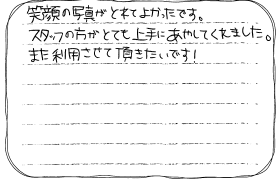 笑顔の写真がとれてよかったです。
スタッフの方がとても上手にあやしてくれました。
また利用させて頂きたいです!